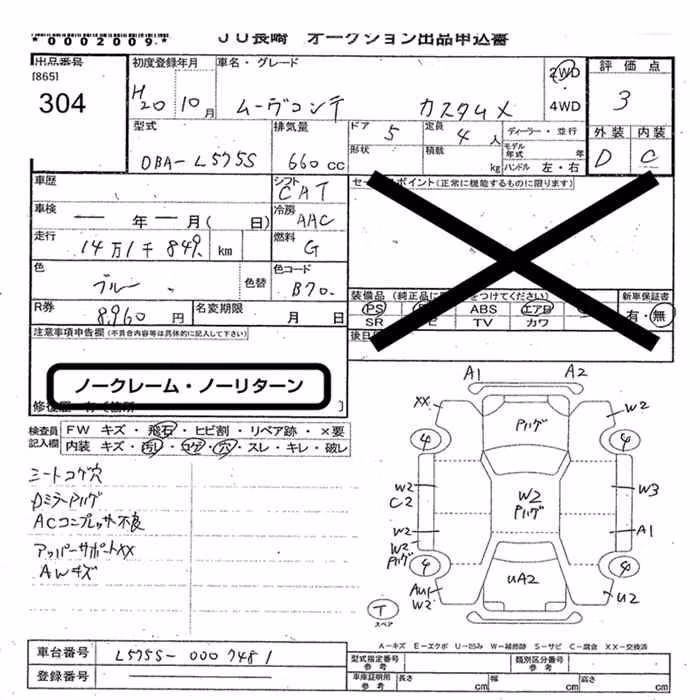 *0002009*
JU長崎 オークション出品申込書
出品番号
[865]
304
初度登録年月
H20 10月
車名・グレード
ムーヴコンテ カスタムX
2WD
4WD
評価点
3
外装 内装
D C
型式
DBA-L575S
排気量
660cc
ドア 5
定員 4人
形状
積載 kg
ディーラー・並行
モデル年式 年
ハンドル 左・右
車歴
シフト
CAT
車検
年 月( 日)
冷房
AAC
走行
14万1千849 km
燃料
G
色
ブルー
色替
色コード
B70
R券
8,960円
名変期限
月 日
セールスポイント(正常に機能するものに限ります)
装備品(純正品に をつけてください)
PS ABS エアB
SR TV カワ
新車保証書
有・無
後日
注意事項申告欄(不具合内容等は具体的に記入して下さい)
ノークレーム・ノーリターン
検査員記入欄
FW キズ・飛石・ヒビ割・リペア跡・×要
内装 キズ・汚レ・コゲ・穴・スレ・キレ・破レ
シートコゲ穴
DミラーPハゲ
ACコンプレッサ不良
アッパーサポートXX
AWキズ
A1 A2
XX W2
Pハゲ
4 4
W2 C2
W2
Pハゲ
W3
W2
A1
W2
Pハゲ
4 4
UA2
AU1
W2
U2
T
スペア
A-キズ E-エクボ U-凹み W-補修跡 S-サビ C-腐食 XX-交換済
車台番号
L575S-0007481
登録番号
型式指定番号
参考
類別区分番号
参考
車庫証明用
参考
長さ cm
幅 cm
高さ cm